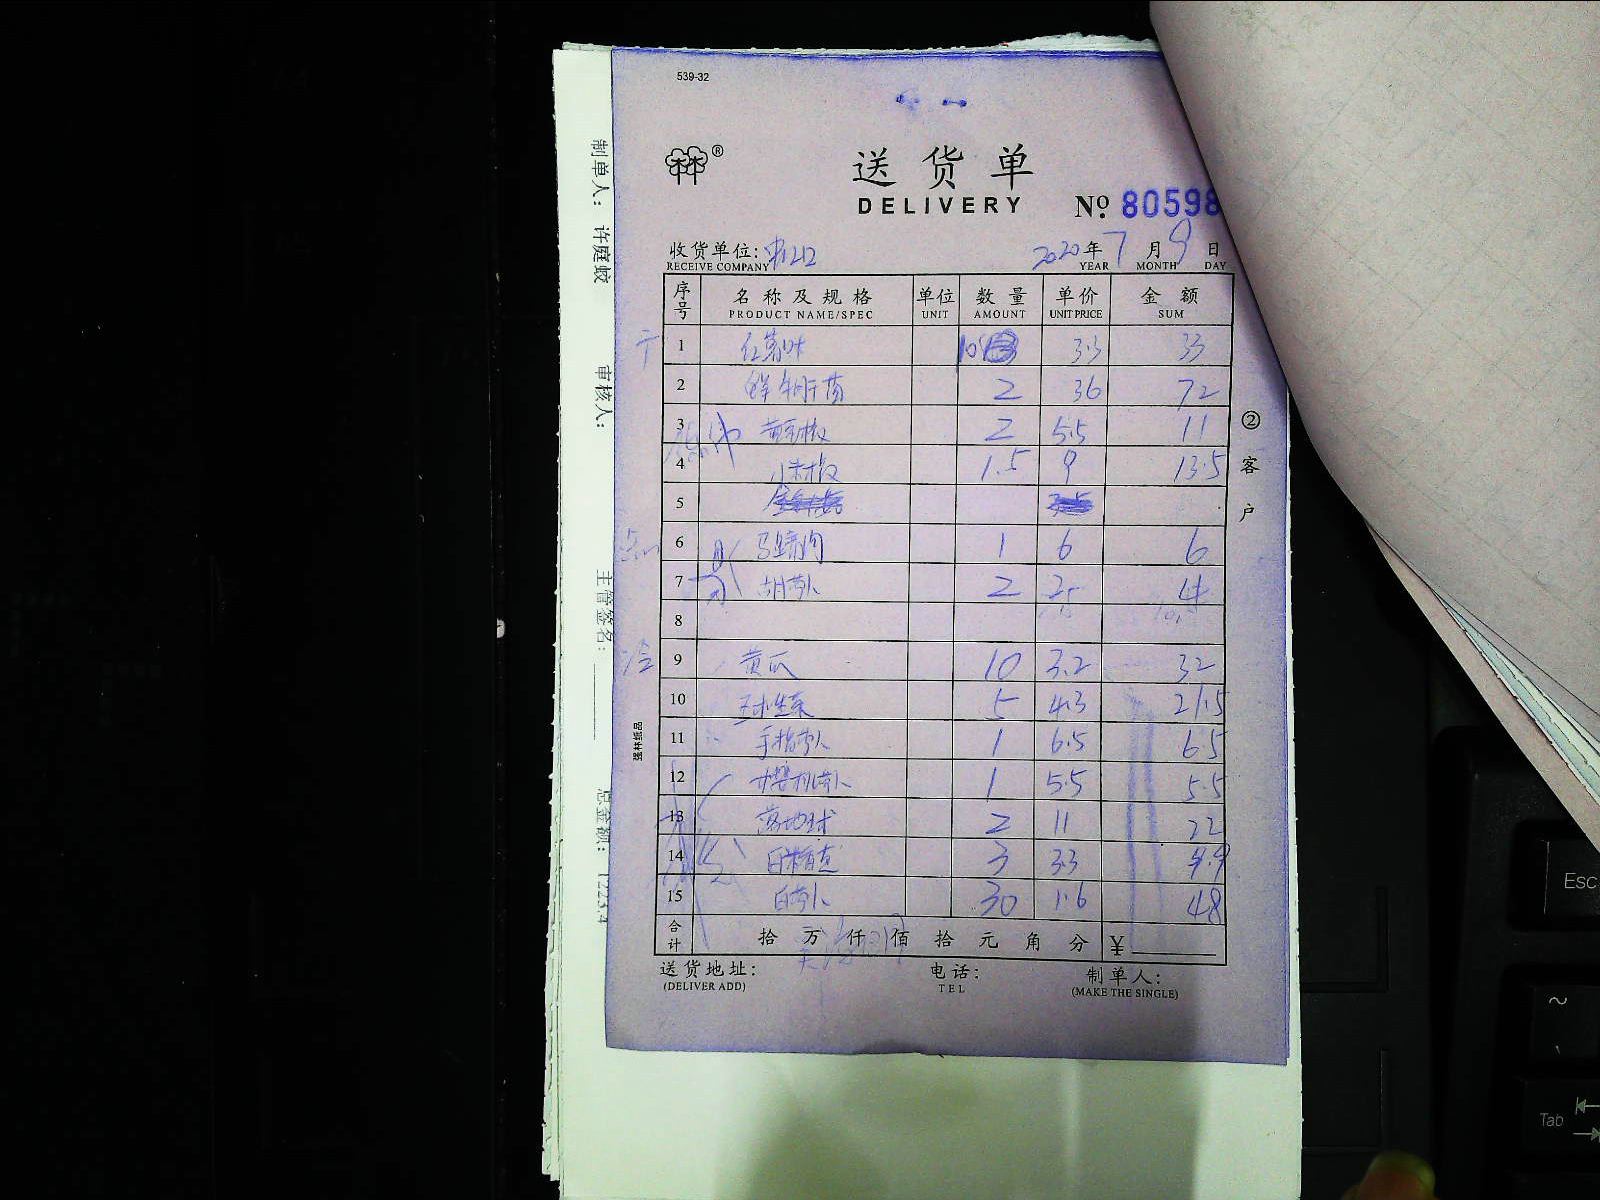 539-32
®
送货单
DELIVERY
№ 80598
收货单位:
RECEIVE COMPANY
2020年7月9日
YEAR MONTH DAY
序号 名称及规格 单位 数量 单价 金额
PRODUCT NAME/SPEC UNIT AMOUNT UNIT PRICE SUM
1 10 3.3 33
2 2 36 72
3 2 5.5 11
4 小米椒 1.5 9 13.5
5
6 马蹄肉 1 6 6
7 胡萝卜 2 2 4
8
9 黄瓜 10 3.2 32
10 球生菜 5 4.3 21.5
11 手指萝卜 1 6.5 6.5
12 樱桃萝卜 1 5.5 5.5
13 2 11 22
14 3 3.3 9.9
15 白萝卜 30 1.6 48
合计 拾 万 仟 佰 拾 元 角 分 ¥
送货地址: 电话: 制单人:
(DELIVER ADD) TEL (MAKE THE SINGLE)
②客户
强林纸品
制单人: 许庭蛟 审核人: 主管签名: 总金额:
Esc
~
Tab